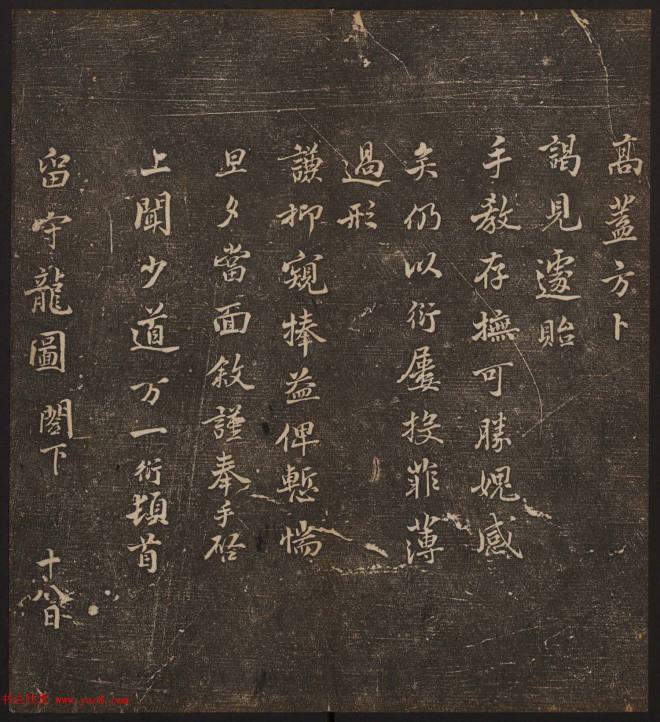 高蓋方卜
謁見遽貽
手教存撫可勝媿感
矣仍以衍屢投菲薄
過形
謙抑窺捧益俾慙惴
旦夕當面敘謹奉手啓
上聞少道万一衍頓首
留守龍圖閣下 十八日
www.yac8.com